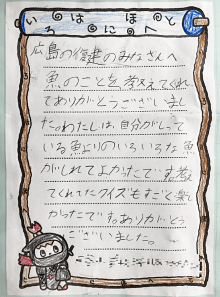 い ろ は に ほ へ と
広島の復建のみなさんへ
魚のことを教えてくれ
てありがとうございまし
た。わたしは、自分がしって
いる魚よりのいろいろな魚
がしれてよかったです。教え
てくれてたクイズもすごく楽し
かったです。ありがとう
ございました。